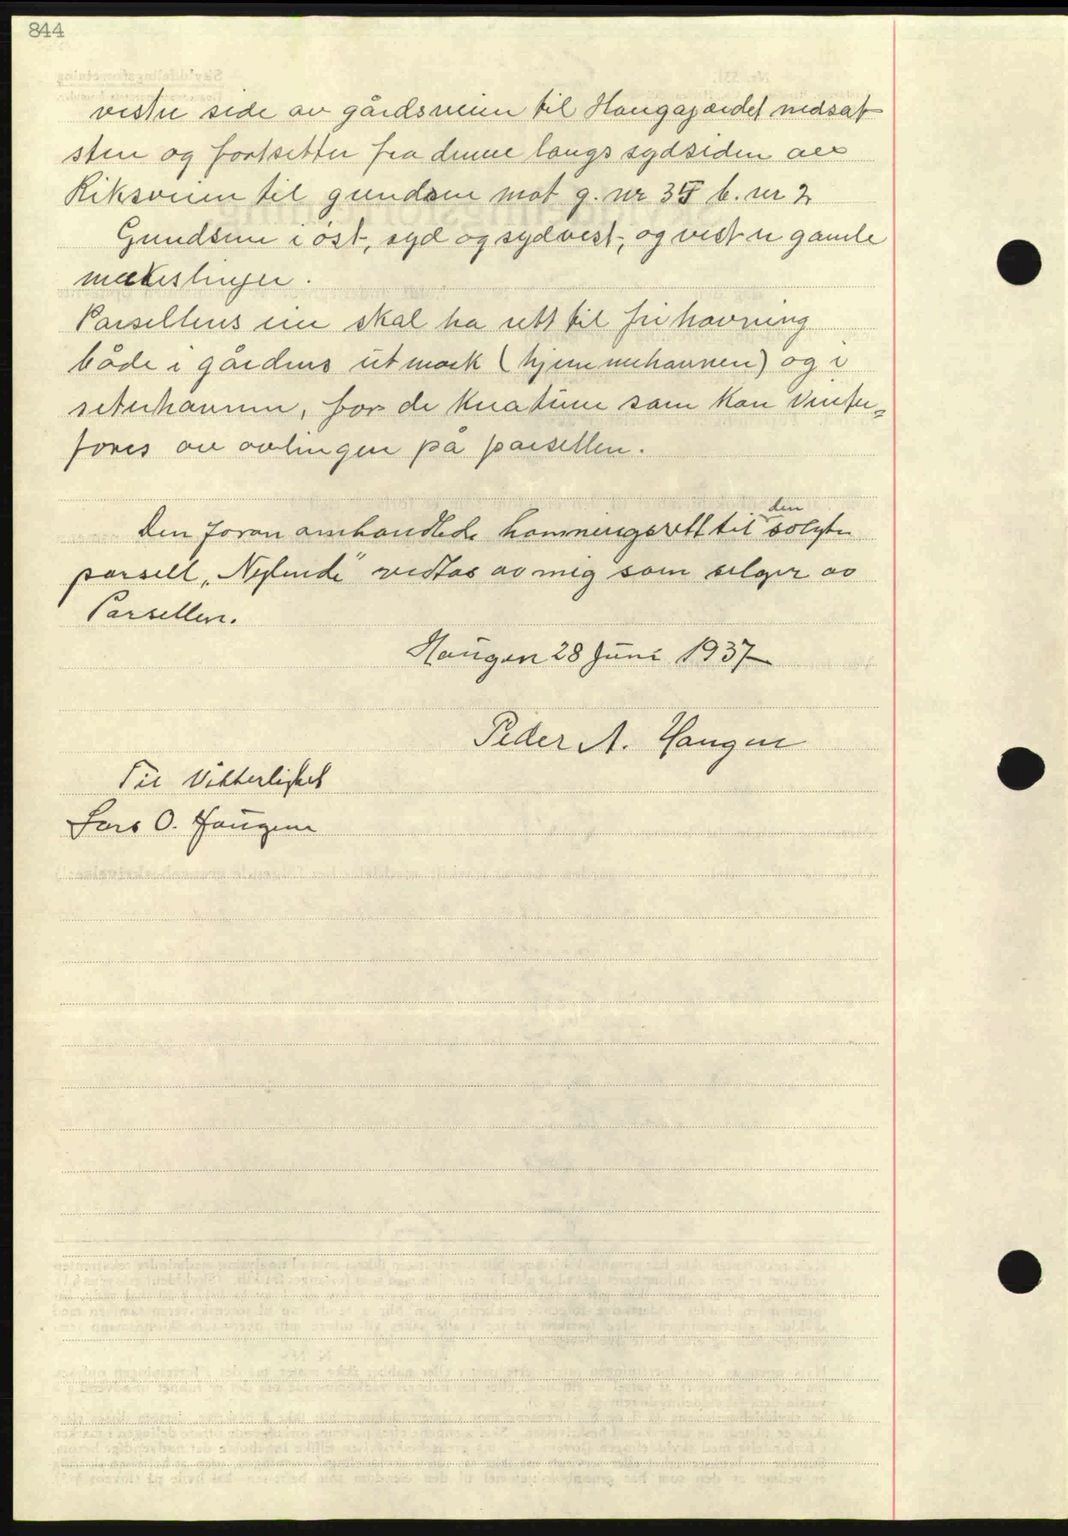 844
vestre side av gårdsveien til Haugagjærdet nedsat
sten og fortsetter fra denne langs sydsiden av
Riksveien til grendsen mot g. nr 35 b. nr 2
Grendsene i øst, syd og sydvest, og vest er gamle
merkeslinjer.
Parsellens eier skal ha rett til fri havning
både i gårdens utmark (hjemmehavnen) og i
seterhavnen, for de kreature som kan vinter=
fores av avlingen på parsellen.
Den foran omhandlede havningsrett til den solgte
parsell „Nylende" vedtas av mig som selger av
Parsellen.
Haugen 28 Juni 1937
Peder A. Haugen
Til Vitterlighet
Lars O. Haugen